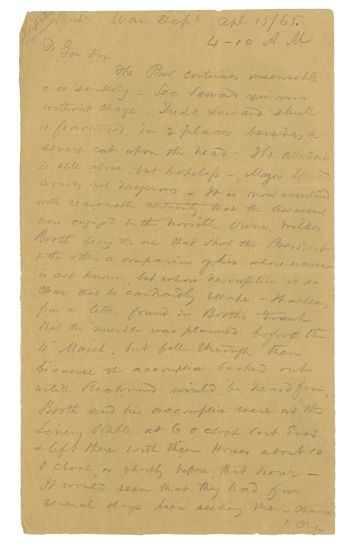 War Dept Apl 15/65.
4-10 A M
To Gen Dix
The Pres. continues insensible
& is sinking - Sec Seward remains
without change. Fredk Seward skull
is fractured in 2 places besides a
severe cut upon the head - The attendant
is still alive, but hopeless - Major Seward
wounds not dangerous - It is now ascertained
with reasonable certainty that two assassins
were engaged in the horrible crime, Wilkes
Booth being the one that shot the President
& the other a companion of his whose name
is not known, but whose description is so
clear that he can hardly escape - It appears
from a letter found in Booths trunk
that the murder was planned before the
4 March. but fell through then
because the accomplice backed out
until Richmond could be heard from.
Booth and his accomplice were at the
Livery Stable at 6 o clock last Evng
& left there with their Horses about 10
o clock, or shortly before that hour -
It would seem that they had for
several days been seeking their chance
Over